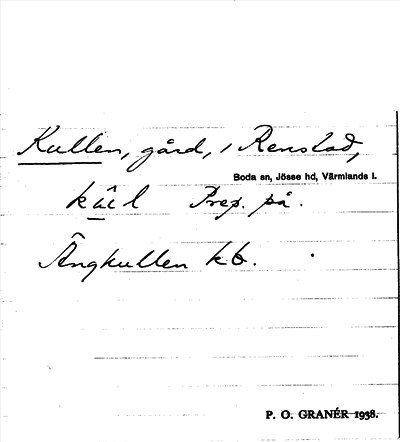 Kullen, gård, i Renstad,
Boda sn, Jösse hd, Värmlands l.
kûl Prep. på.
Ängkullen kb.
P. O. GRANÉR 1938.